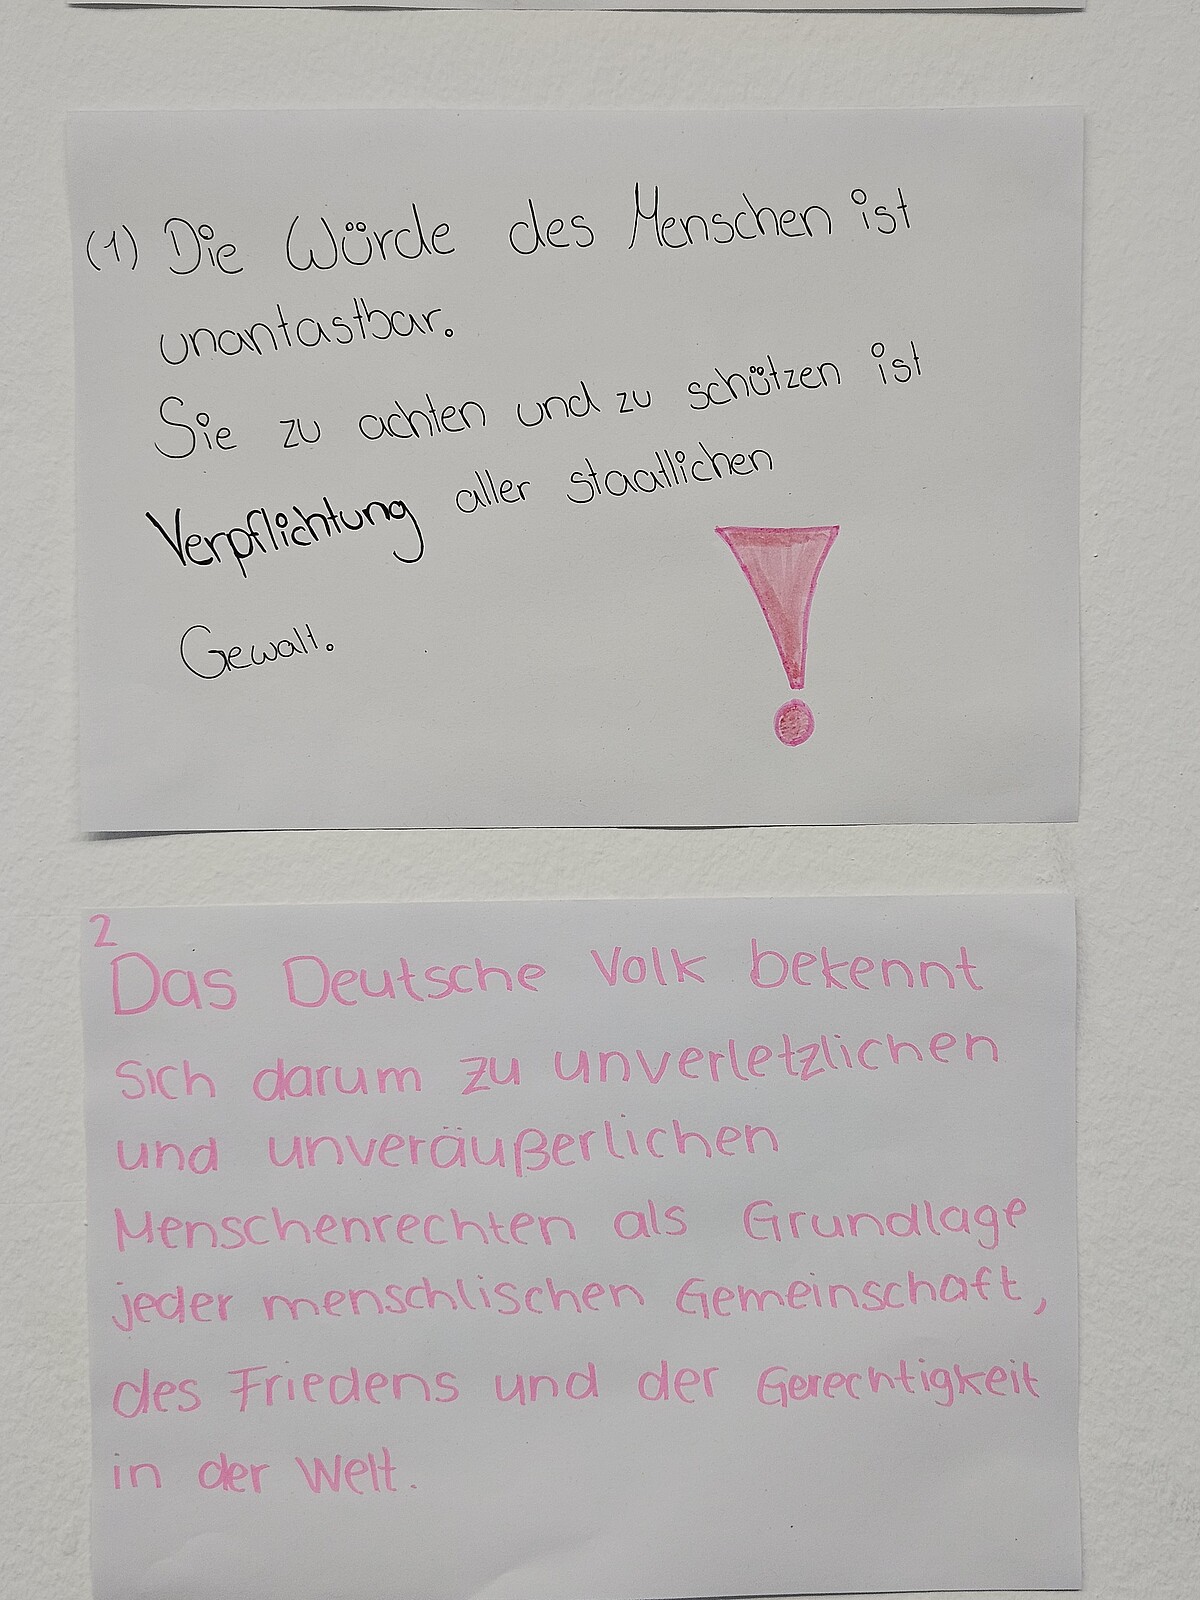 (1) Die Würde des Menschen ist
unantastbar.
Sie zu achten und zu schützen ist
Verpflichtung aller staatlichen
Gewalt.
2
Das Deutsche Volk bekennt
sich darum zu unverletzlichen
und unveräußerlichen
Menschenrechten als Grundlage
jeder menschlischen Gemeinschaft,
des Friedens und der Gerechtigkeit
in der Welt.